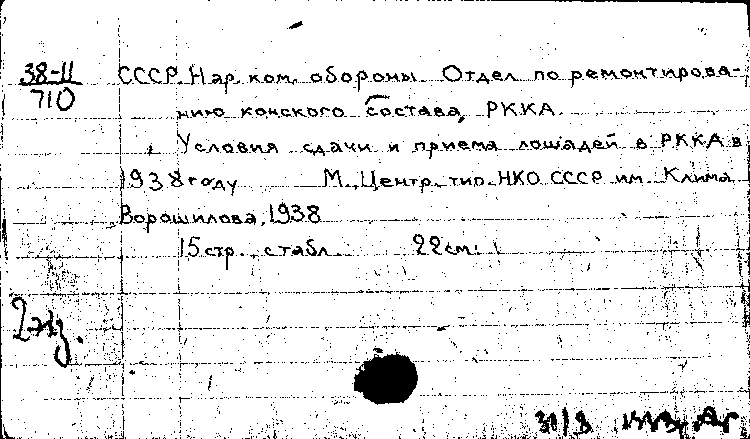 38-11
710
СССР. Нар. ком. обороны. Отдел по ремонтирова-
нию конского состава, РККА.
Условия сдачи и приема лошадей в РККА в
1938 году М., Центр. тип. НКО СССР им. Клима
Ворошилова, 1938
15 стр., с табл. 22 см.
2 экз.
31/8